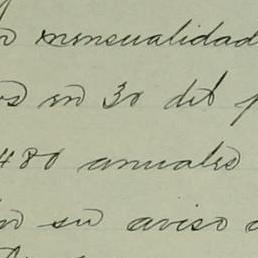 mensualidad
en 30 del
480 anuales
su aviso